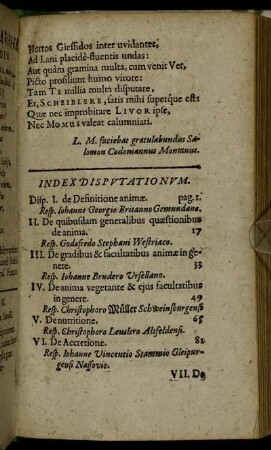 Hortos Giessidos inter uvidantes,
Ad Lani placidè-fluentis undas:
Aut quàm gramina multa, cum venit Ver,
Picto prosiliunt humo virore:
Tam TE millia multa disputare,
Et, SCHEIBLERE, satis mihi superque est:
Quæ nec improbitare LIVOR ipse,
Nec MOMUS valeat calumniari.
L. M. faciebat gratulabundus Sa-
lomon Codomannus Montanus.
INDEX DISPVTATIONVM.
Disp. I. de Definitione animæ. pag. 1.
Resp. Iohanne Georgio Britanno Gemundano.
II. De quibusdam generalibus quæstionibus
de anima. 17
Resp. Godefredo Stephani Westriaco.
III. De gradibus & facultatibus animæ in ge-
nere. 33
Resp. Iohanne Brudero Vrsellano.
IV. De anima vegetante & ejus facultatibus
in genere. 49
Resp. Christophoro Müller Schweinsburgensi
V. De nutritione. 65
Resp. Christophoro Leuslero Alsfeldensi.
VI. De Accretione. 82
Resp. Iohanne Vincentio Stammio Gleipur-
gensi Nassovio.
VII. De